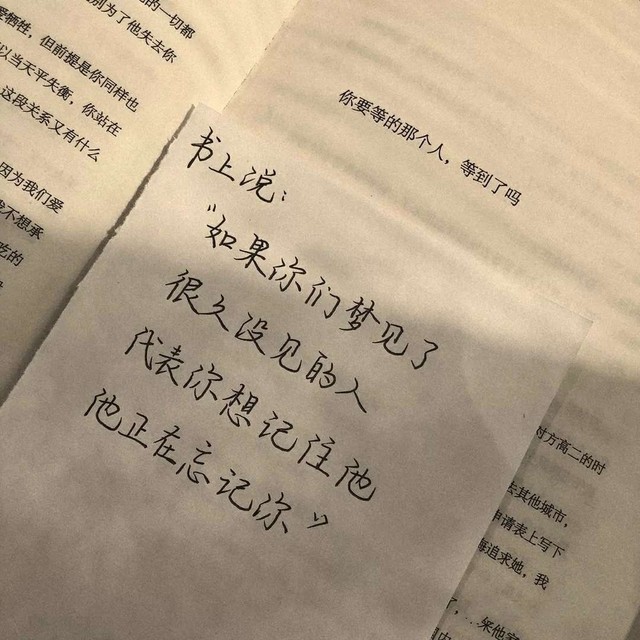 的一切都
别为了他失去你
爱牺牲，但前提是你同样也
以当天平失衡，你站在
这段关系又有什么
因为我们爱
我不想承
吃的
你要等的那个人，等到了吗
书上说：
“如果你们梦见了
很久没见的人
代表你想记住他
他正在忘记你”
对方高二的时
去其他城市，
申请表上写下
海追求她，我